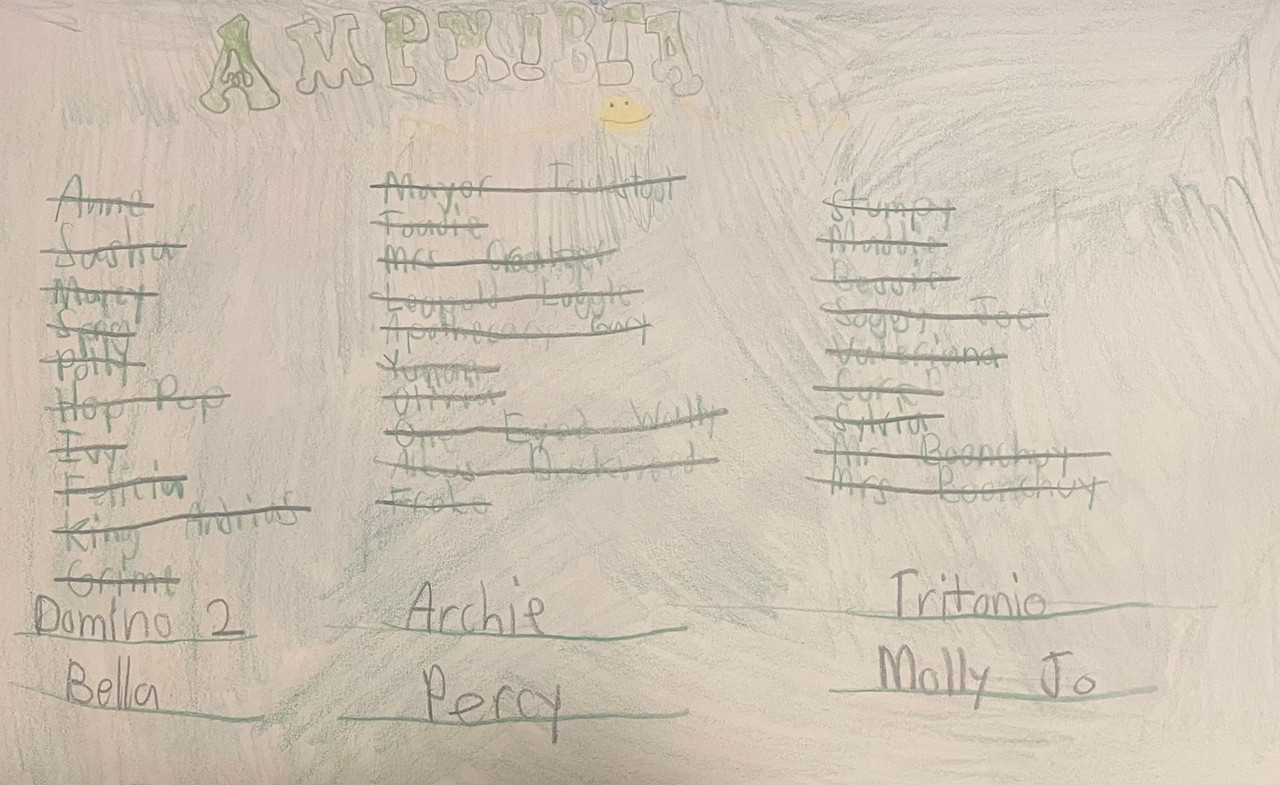 AMPHIBIA
Anne
Sasha
Marcy
Sprig
Polly
Hop Pop
Ivy
Felicia
King Andrias
Grime
Domino 2
Bella
Mayor Toadstool
Toadie
Mrs Croaker
Leopold Loggle
Apothecary Gary
Yunan
Olivia
One Eyed Wally
Albus Duckweed
Frobo
Archie
Percy
Stumpy
Maddie
Bessie
Soggy Joe
Valeriana
Sylvia
Mr Boonchuy
Mrs Boonchuy
Tritonio
Molly Jo